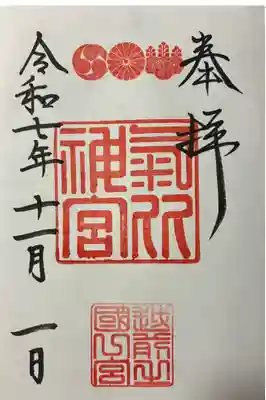 奉拝
氣比
神宮
越前之
國
宮
令和七年十一月一日